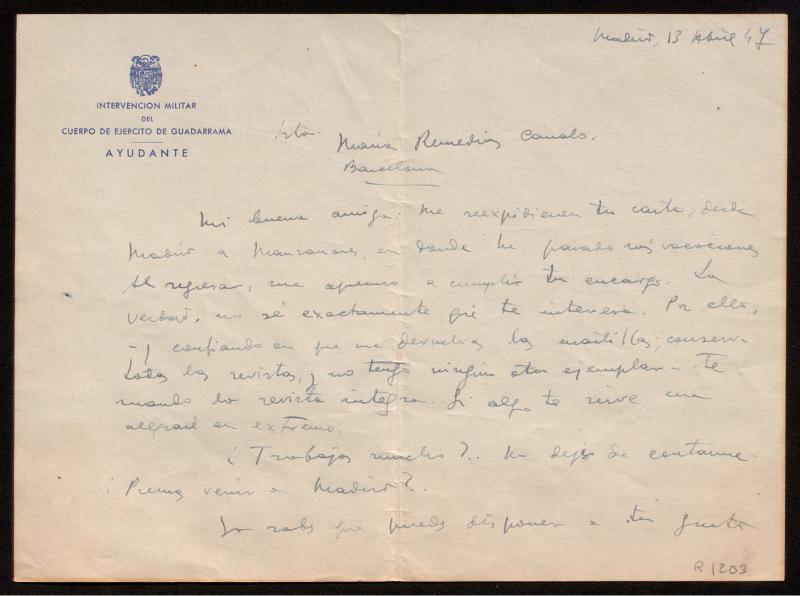 Madrid, 13 Abril 47
INTERVENCION MILITAR
DEL
CUERPO DE EJERCITO DE GUADARRAMA
AYUDANTE
Srta. María Remedios Canals.
Barcelona
Mi buena amiga: Me reexpidieron tu carta, desde
Madrid a Manzanares, en donde he pasado mis vacaciones
Al regresar, me apresuro a cumplir tu encargo. La
verdad, no sé exactamente qué te interesa. Por ello,
- y confiando en que me devuelvas las; conservo
todas las revistas, y no tengo ningún otro ejemplar - te
mando la revista íntegra. Si algo te sirve, me
alegraré en extremo.
¿Trabajas mucho?.. No dejes de contarme.
¿Piensas venir a Madrid?..
Ya sabes que puedes disponer a tu gusto
R 1203